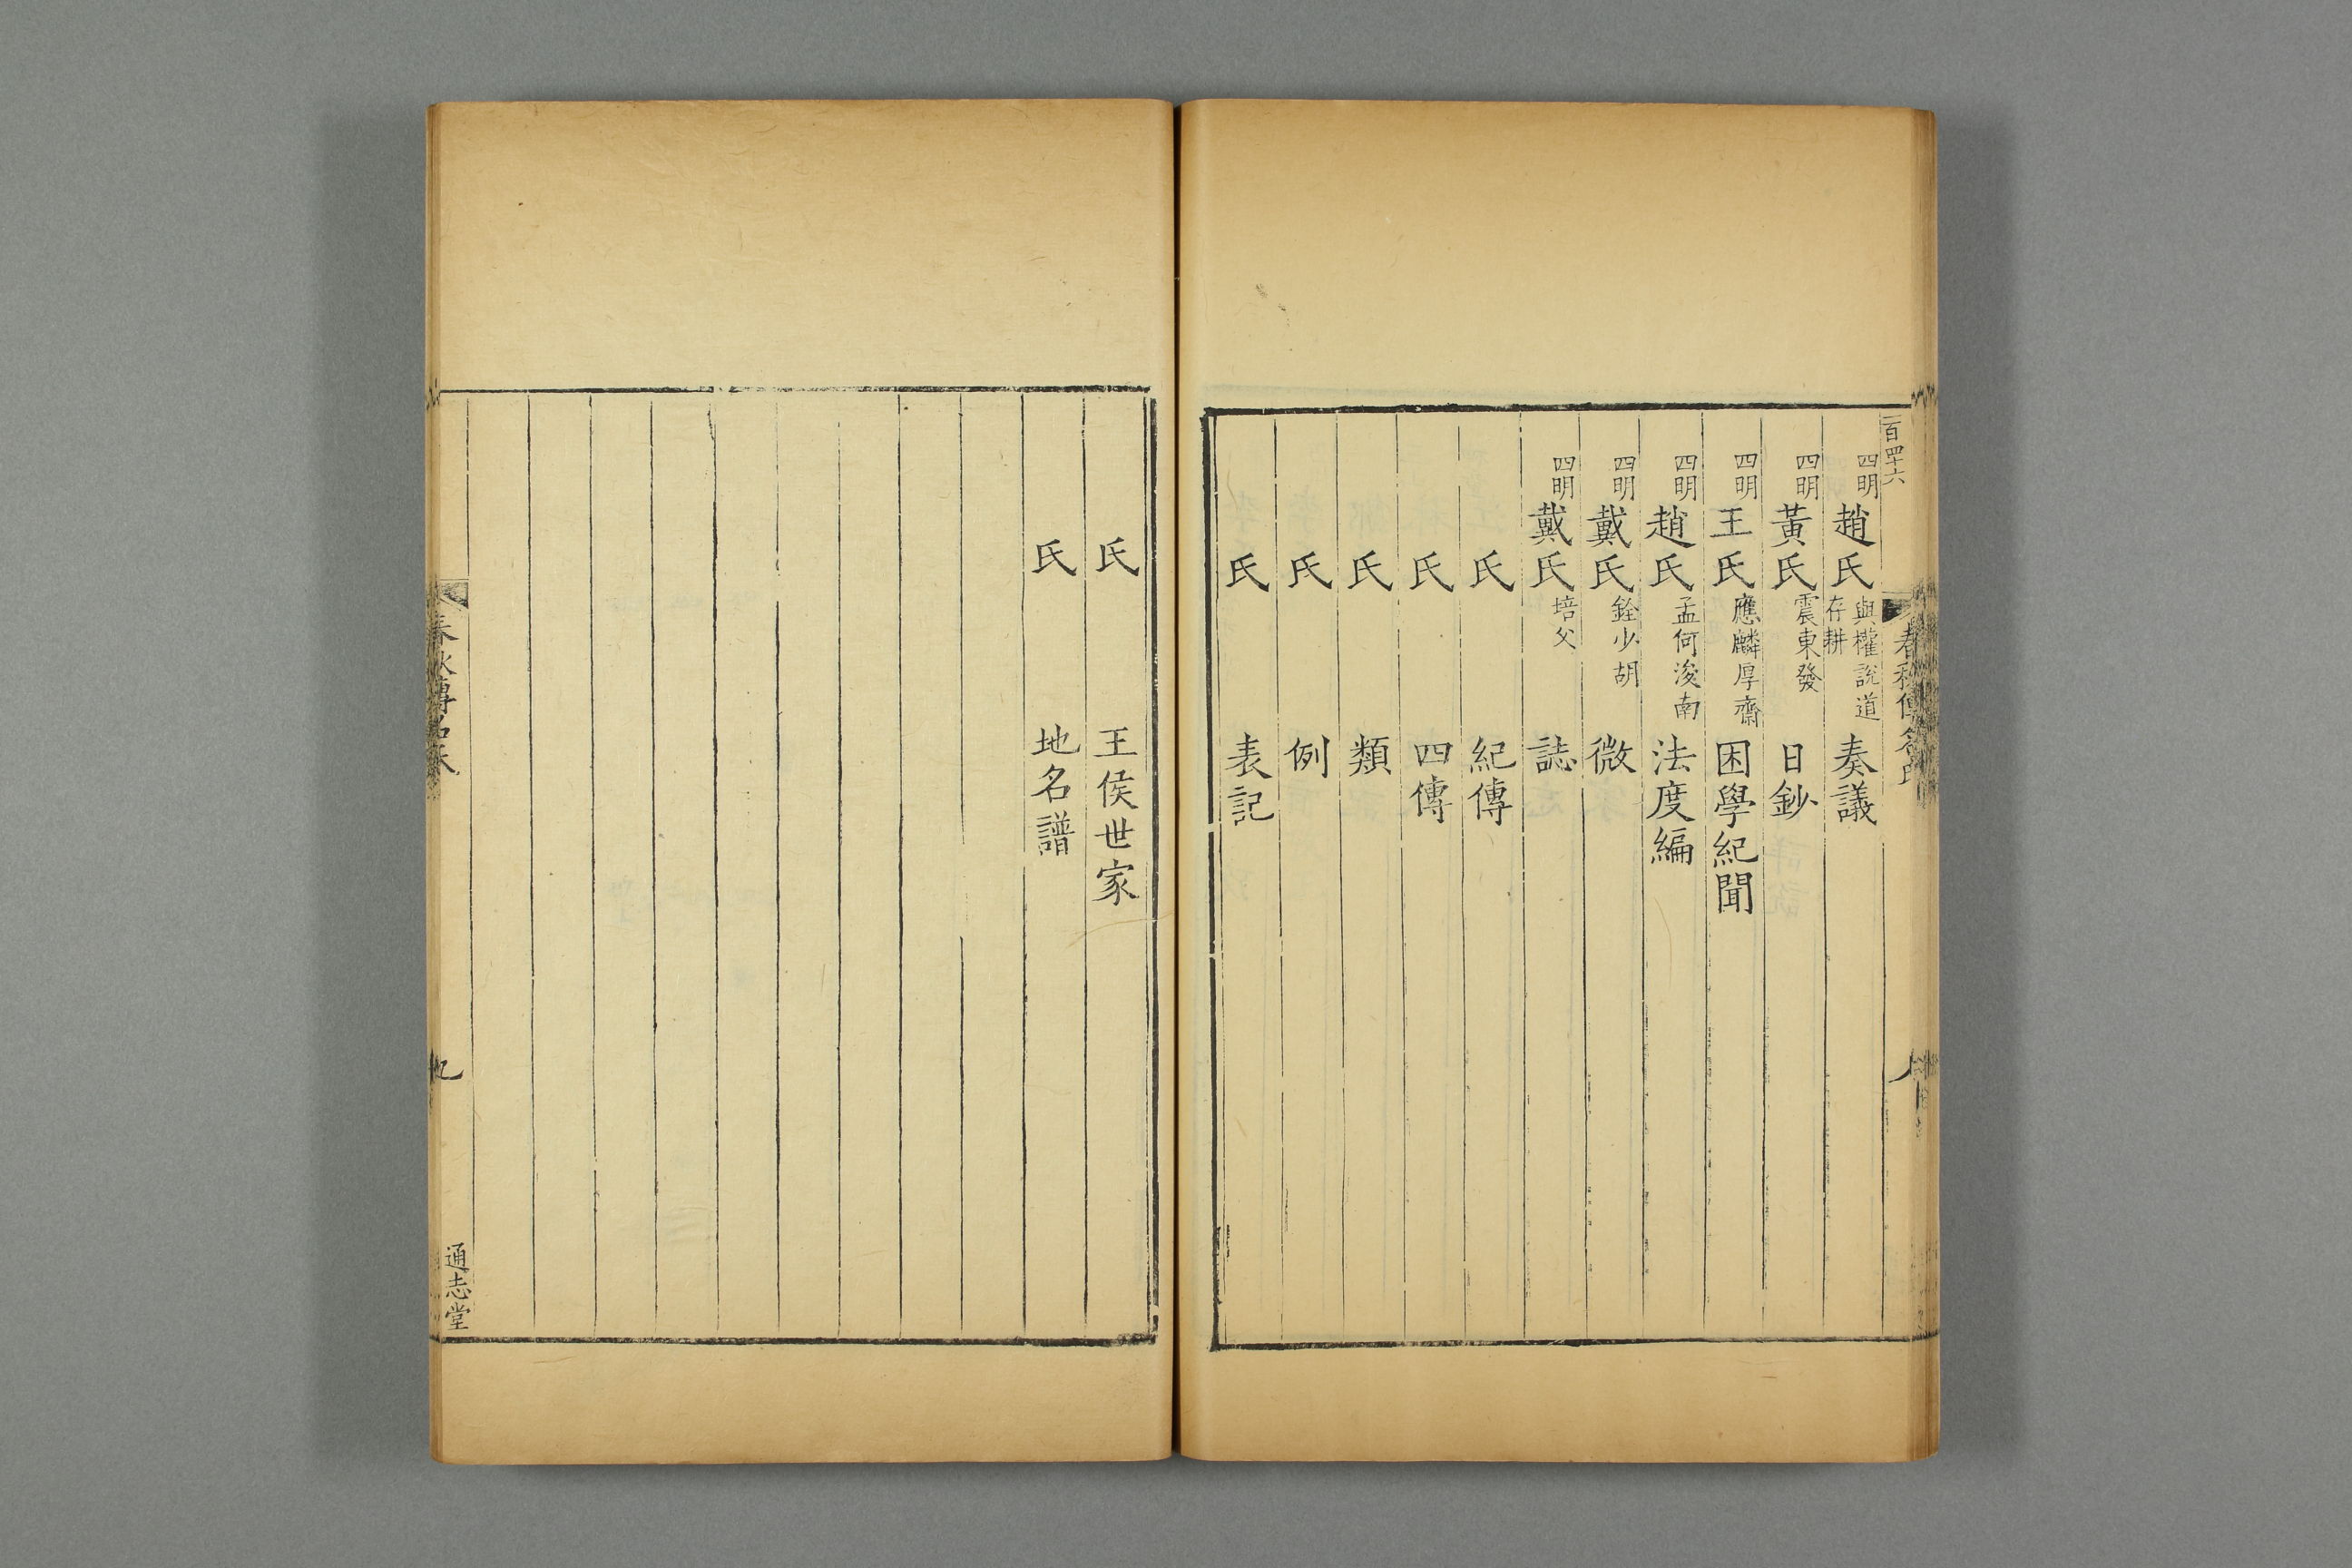 百四十六
春秋傳名氏
四明趙氏與權說道存耕 奏議
四明黃氏震東發 日鈔
四明王氏應麟厚齋 困學紀聞
四明趙氏孟何浚南 法度編
四明戴氏銓少胡 微
四明戴氏培父 誌
氏 紀傳
氏 四傳
氏 類
氏 例
氏 表記
氏 王侯世家
氏 地名譜
春秋傳名氏
九
通志堂